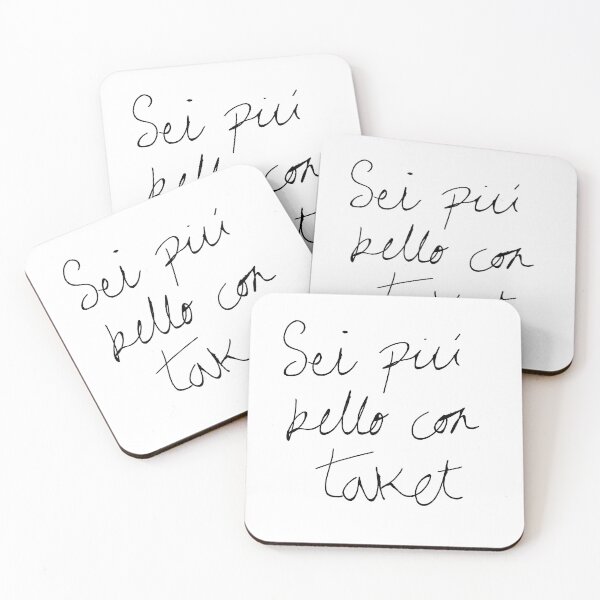 Sei piú
bello con
Sei piú
bello con
Sei piú
bello con
tak
Sei piú
bello con
taket